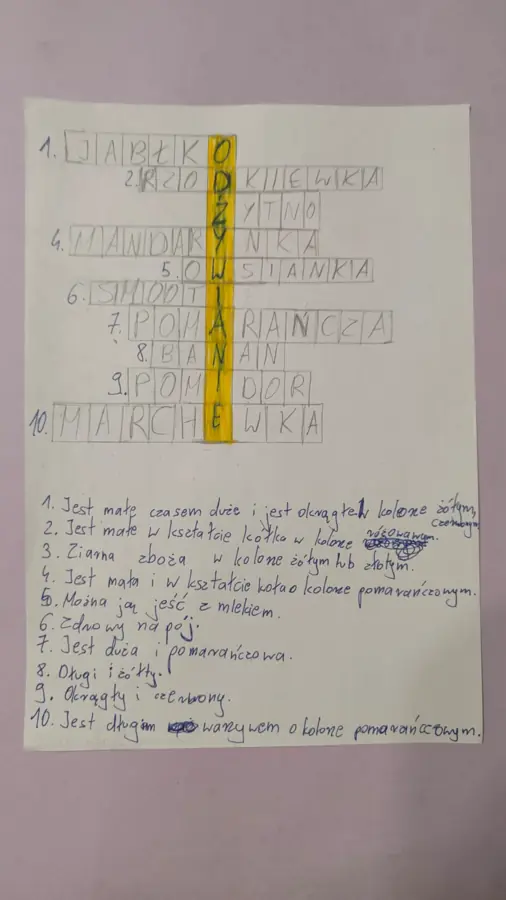 1. JABŁKO
2. RZODKIEWKA
ŻYTNO
4. MANDARYNKA
5. OWSIANKA
6. SMOOTI
7. POMARAŃCZA
8. BANAN
9. POMIDOR
10. MARCHEWKA
1. Jest małe czasem duże i jest okrągłe w kolorze żółtym, czerwonym
2. Jest małe w kształcie kółka w kolorze różowawym.
3. Ziarna zboża w kolorze żółtym lub złotym.
4. Jest mała i w kształcie koła o kolorze pomarańczowym.
5. Można ją jeść z mlekiem.
6. Zdrowy napój.
7. Jest duża i pomarańczowa.
8. Długi i żółty.
9. Okrągły i czerwony.
10. Jest długim warzywem o kolorze pomarańczowym.